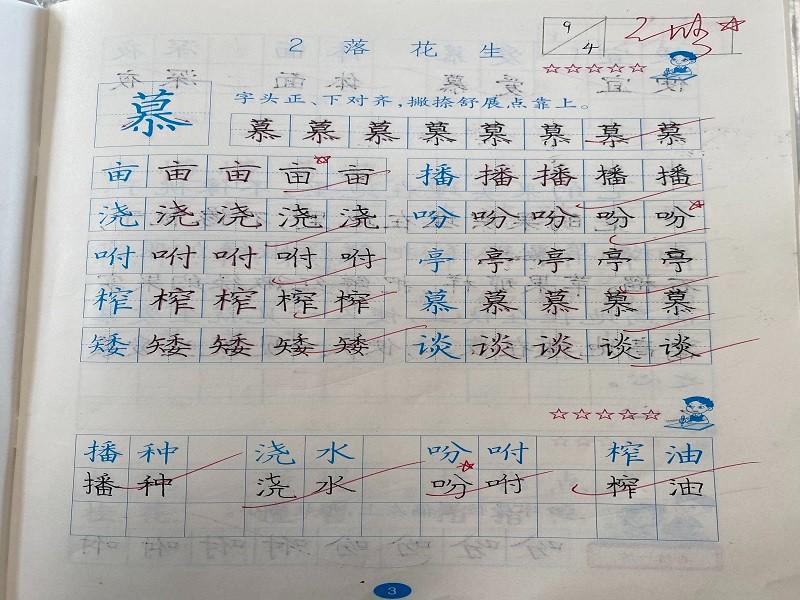 9
4
2 落花生
字头正、下对齐，撇捺舒展点靠上。
慕
慕 慕 慕 慕 慕 慕 慕 慕
亩 亩 亩 亩 亩 播 播 播 播 播
浇 浇 浇 浇 浇 吩 吩 吩 吩 吩
咐 咐 咐 咐 咐 亭 亭 亭 亭 亭
榨 榨 榨 榨 榨 慕 慕 慕 慕 慕
矮 矮 矮 矮 矮 谈 谈 谈 谈 谈
播种 浇水 吩咐 榨油
播种 浇水 吩咐 榨油
3